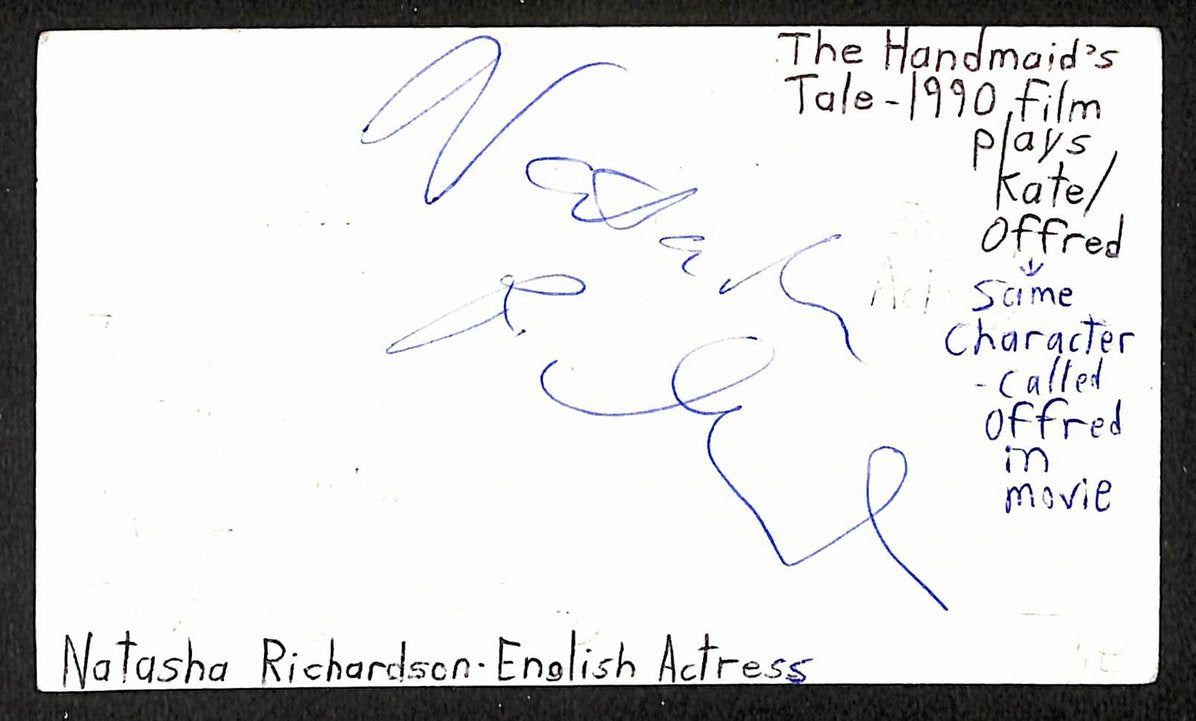 The Handmaid's
Tale - 1990 film
plays
Kate/
Offred
same
character
- called
Offred
in
movie
Natasha
Natasha Richardson - English Actress